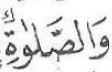 وَالصَّلٰوةِؕ